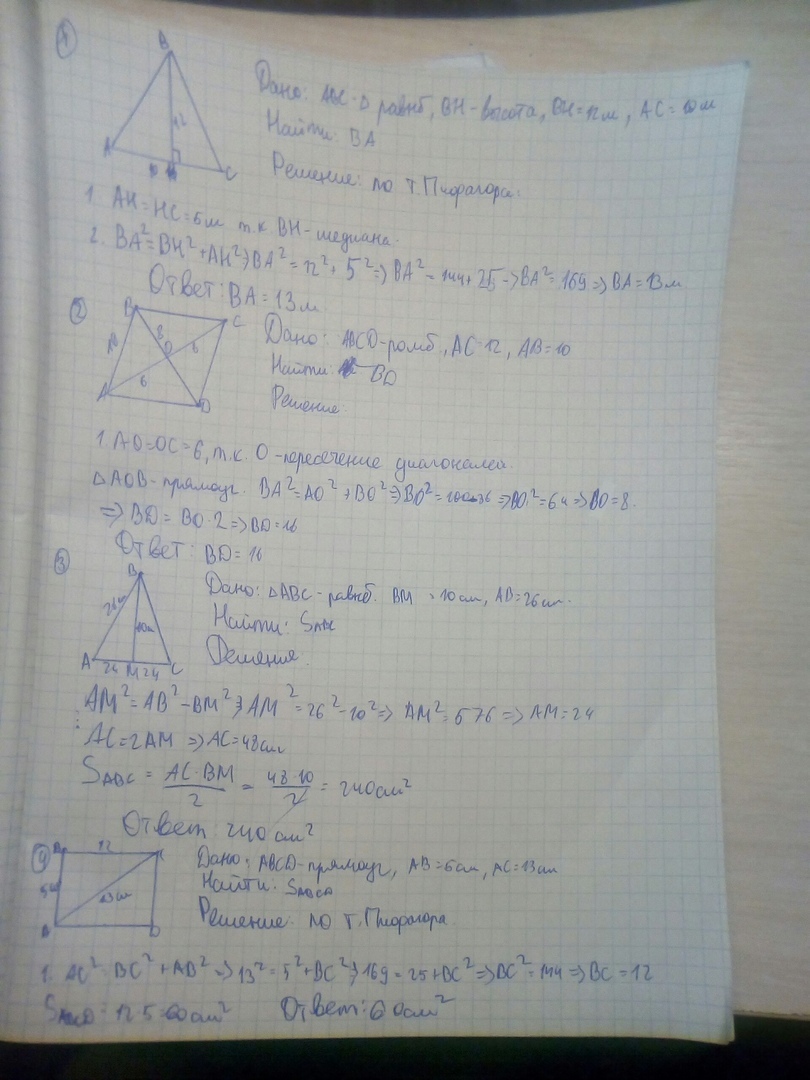 1
B
12
A
H
C
Дано: ABC-Δ равнб, BH-высота, BH=12м, AC=10м
Найти: BA
Решение: по т. Пифагора:
1. AH=HC=5м т.к BH-медиана.
2. BA²=BH²+AH²⇒BA²=12²+5²⇒BA²=144+25⇒BA²=169⇒BA=13м
Ответ: BA=13м.
2
B
C
10
8
O
6
6
A
D
Дано: ABCD-ромб, AC=12, AB=10
Найти: BD
Решение:
1. AO=OC=6, т.к. O-пересечение диагоналей.
ΔAOB-прямоуг. BA²=AO²+BO²⇒BO²=100-36⇒BO²=64⇒BO=8.
⇒BD=BO·2⇒BD=16
Ответ: BD=16
3
B
26см
10см
A
24
M
24
C
Дано: ΔABC-равнб. BM=10см, AB=26см.
Найти: SABC
Решение
AM²=AB²-BM²⇒AM²=26²-10²⇒AM²=576⇒AM=24
AC=2AM⇒AC=48см
SABC = AC·BM/2 = 48·10/2 = 240см²
Ответ: 240см²
4
B
12
C
5см
13см
A
D
Дано: ABCD-прямоуг, AB=5см, AC=13см
Найти: SABCD
Решение: по т. Пифагора
1. AC²=BC²+AB²⇒13²=5²+BC²⇒169=25+BC²⇒BC²=144⇒BC=12
SABCD=12·5=60см² Ответ: 60см²